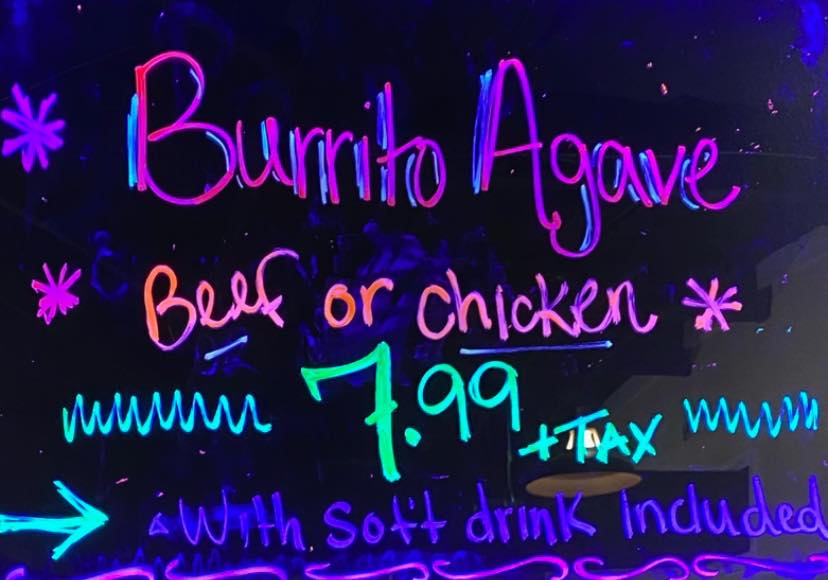 Burrito Agave
Beef or chicken
7.99 +TAX
With Soft drink Included